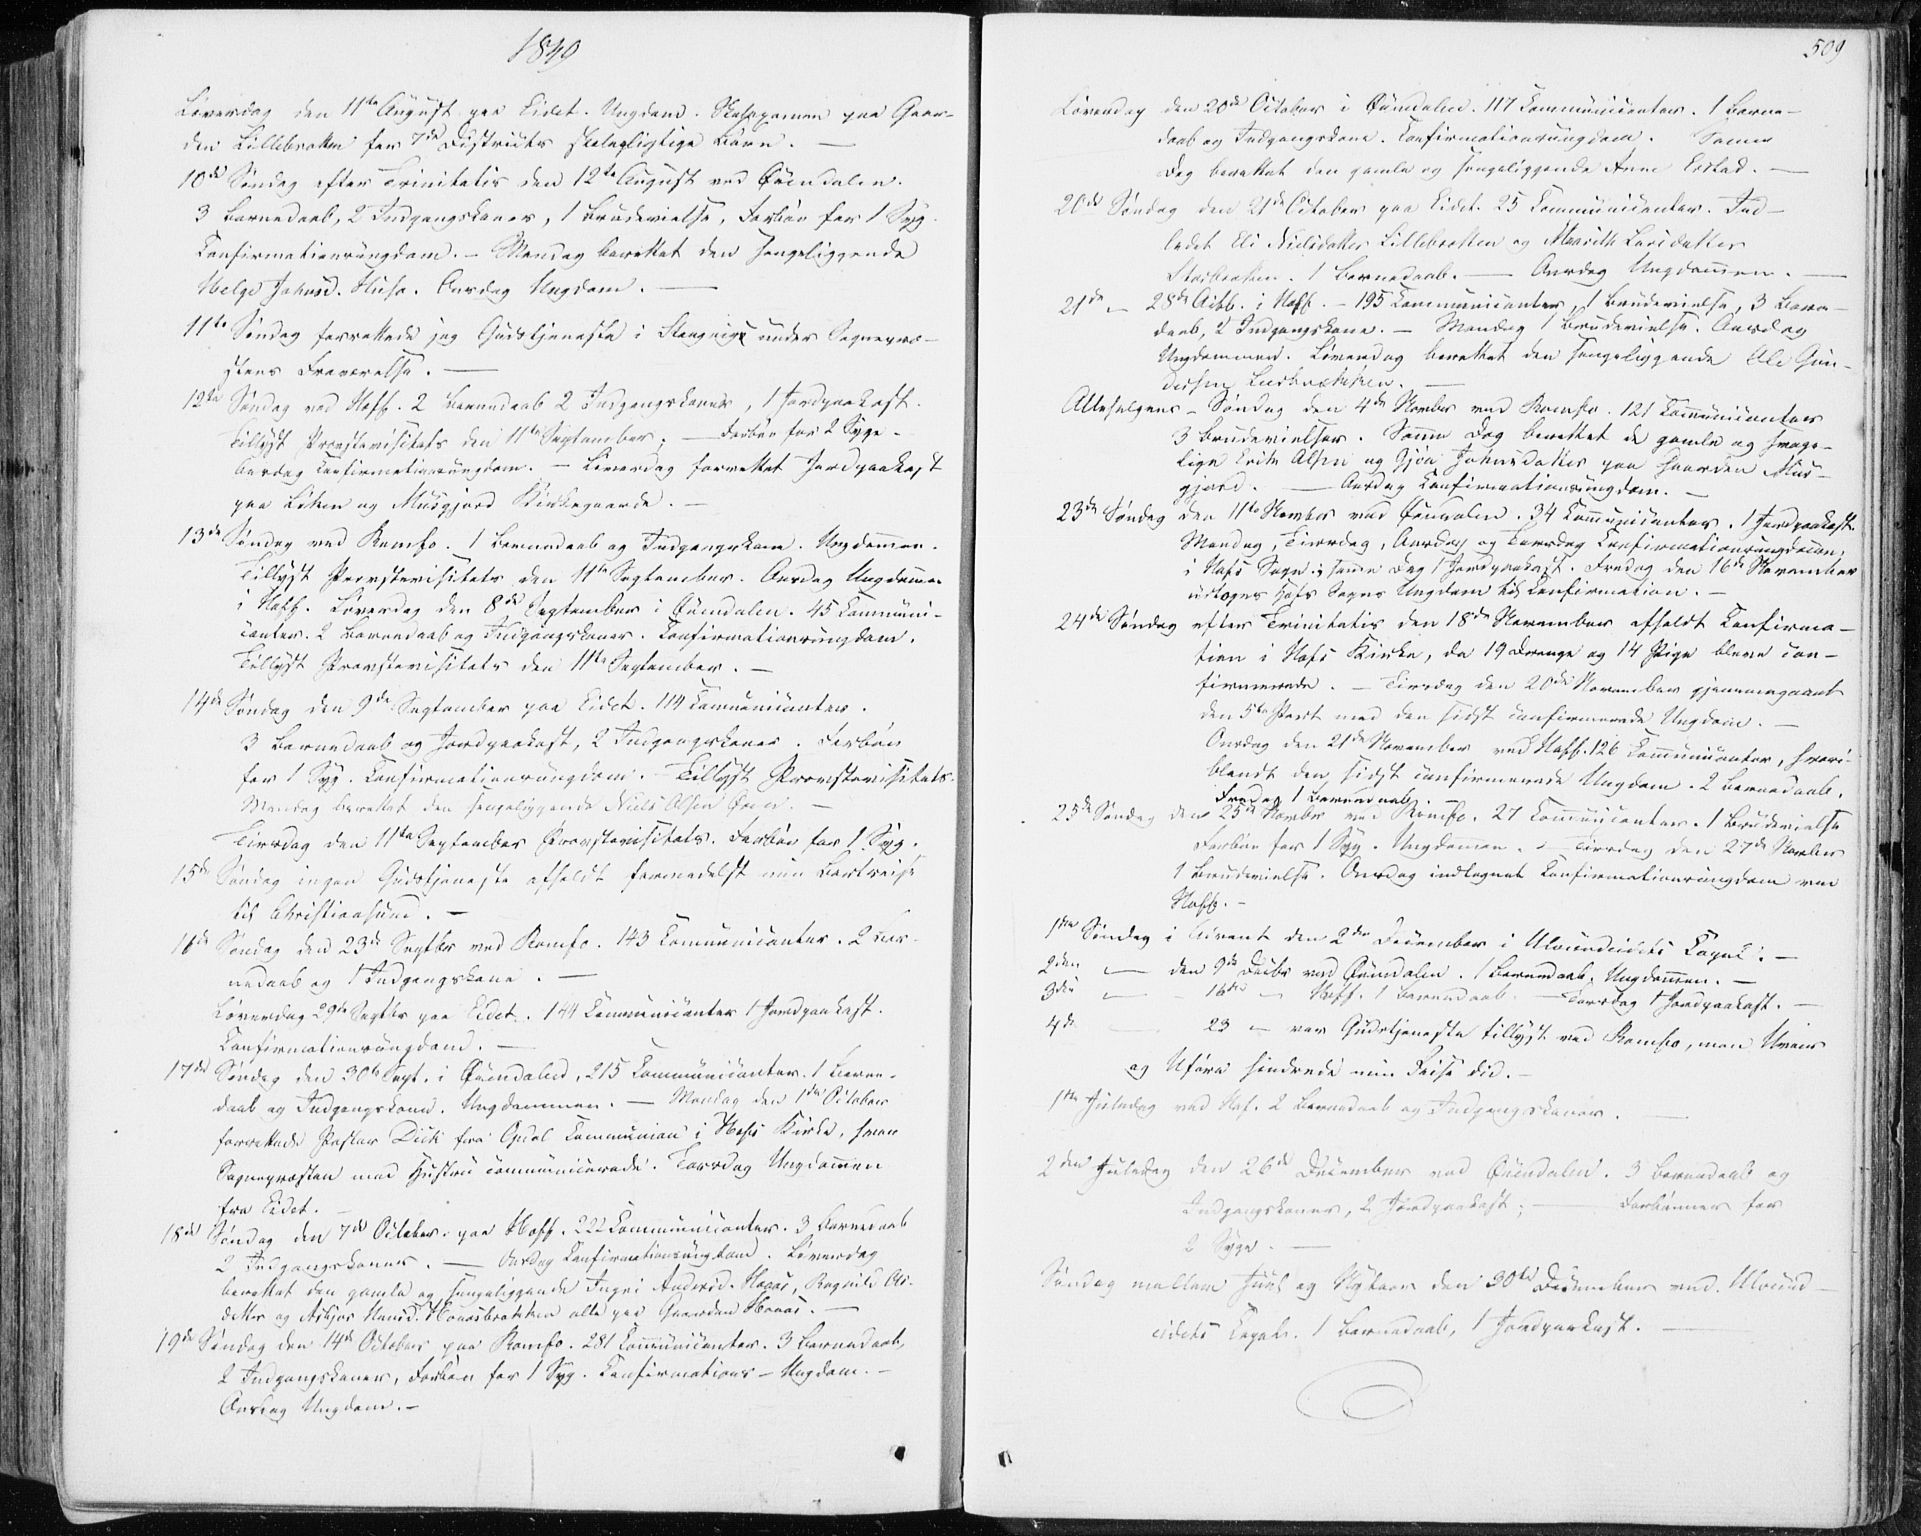 1849
Løverdag den 11te August paa Eidet. Ungdom. Skoleexamen paa Gaar-
den Lillebratten for 7de Districts skolepligtige Børn. —
10de Søndag efter Trinitatis den 12te August ved Øxendalen.
3 Barnedaab, 2 Indgangskoner, 1 Brudevielse, Forbøn for 1 Syg.
Confirmationsungdom. — Mandag berettet den sengeliggende
Helge Johnsd. Huso. Onsdag Ungdom. —
11te Søndag forrettede jeg Gudstjeneste i Stangvig under Sognepræ-
stens Fraværelse. —
12te Søndag ved Hoff. 2 Barnedaab 2 Indgangskoner, 1 Jordpaakast.
Tillyst Provstevisitats den 11te September. — Forbøn for 2 Syge.
Onsdag Confirmationsungdom. — Løverdag forrettet Jordpaakast
paa Løken og Musgjerd Kirkegaarde. —
13de Søndag ved Romfo. 1 Barnedaab og Indgangskone. Ungdommen.
Tillyst Provstevisitats den 11te September. Onsdag Ungdommen
i Hoff. Løverdag den 8de September i Øxendalen. 45 Communi-
canter. 2 Barnedaab og Indgangskoner. Confirmationsungdom.
Tillyst Provstevisitats den 11te September. —
14de Søndag den 9de September paa Eidet. 114 Communicanter.
3 Barnedaab og Jordpaakast, 2 Indgangskoner. Forbøn
for 1 Syg. Confirmationsungdom. — Tillyst Provstevisitats.
Mandag berettet den sengeliggende Niels Olsen. —
Tirsdag den 11te September Provstevisitats. Forbøn for 1 Syg.
15de Søndag ingen Gudstjeneste afholdt formedelst min Bortreise
til Christiansund. —
16de Søndag den 23de Septbr ved Romfo. 143 Communicanter. 2 Bar-
nedaab og 1 Indgangskone. —
Løverdag 29de Septbr paa Eidet. 144 Communicanter 1 Jordpaakast.
Confirmationsungdom. —
17de Søndag den 30te Sept. i Øxendalen, 215 Communicanter. 1 Barne-
daab og Indgangskone. Ungdommen. — Mandag den 1ste October
forrettede Pastor Dick fra Opdal Communion i Hofs Kirke, hvor
Sognepræsten med Hustru communicerede. Torsdag Ungdommen
fra Eidet.
18de Søndag den 7de October paa Hoff. 222 Communicanter. 3 Barnedaab
2 Indgangskoner. — Onsdag Confirmationsungdom. Løverdag
berettet den gamle og sengeliggende Ingri Andersd. Hoaas, Ragnild Ols-
datter og Asbjør Hansd. Hoaasbrækken alle paa Gaarden Hoaas. —
19de Søndag den 14de October paa Romfo. 281 Communicanter. 3 Barnedaab,
2 Indgangskoner, Forbøn for 1 Syg. Confirmations-Ungdom. —
Onsdag Ungdom. —
509
Løverdag den 20de October i Øxendalen. 117 Communicanter. 1 Barne-
daab og Indgangskone. Confirmationsungdom. Samme
Dag berettet den gamle og sengeliggende Anne Erstad. —
20de Søndag den 21de October paa Eidet. 25 Communicanter. Ind-
ledet Eli Nielsdatter Lillebratten og Marith Larsdatter
Storbratten. 1 Barnedaab. — Onsdag Ungdommen. —
21de — 28de Octb. i Hoff. — 195 Communicanter, 1 Brudevielse, 3 Barne-
daab, 2 Indgangskoner. — Mandag 1 Brudevielse. Onsdag
Ungdommen. Løverdag berettet den sengeliggende Ole Gun-
dersen.
Allehelgens-Søndag den 4de Novbr ved Romfo. 121 Communicanter
3 Brudevielser. Samme Dag berettet de gamle og svage-
lige Erik Olsen og Gjøa Johnsdatter paa Gaarden Mus-
gjerd. — Onsdag Confirmationsungdom. —
23de Søndag den 11te Novbr ved Øxendalen. 34 Communicanter. 1 Jordpaakast.
Mandag, Tirsdag, Onsdag og Torsdag Confirmationsungdommen,
i Hofs Sogn; samme Dag 1 Jordpaakast. Fredag den 16de November
udtoges Hofs Sogns Ungdom til Confirmation. —
24de Søndag efter Trinitatis den 18de November afholdt Confirma-
tion i Hofs Kirke, da 19 Drenge og 14 Pige bleve con-
firmerede. — Tirsdag den 20de November gjennemgaaet
den 5te Part med den sidst confirmerede Ungdom. —
Onsdag den 21de November ved Hoff. 126 Communicanter, hvori-
blandt den sidst confirmerede Ungdom. 2 Barnedaab.
Fredag 1 Barnedaab. —
25de Søndag den 25de Novbr ved Romfo. 27 Communicanter. 1 Brudevielse
Forbøn for 1 Syg. Ungdommen. — Tirsdag den 27de Novbr
1 Brudevielse. Onsdag indtegnet Confirmationsungdom ved
Hoff. —
1ste Søndag i Advent den 2den December i Ulvundeidets Capel. —
2den — den 9de Decbr ved Øxendalen. 1 Barnedaab. Ungdommen. —
3die — 16de — Hoff. 1 Barnedaab. — Torsdag 1 Jordpaakast. —
4de — 23 — var Gudstjeneste tillyst ved Romfo, men Uveir
og Uføre hindrede min Reise did. —
1ste Juledag ved Hof. 2 Barnedaab og Indgangskoner. —
2den Juledag den 26de December ved Øxendalen. 3 Barnedaab og
Indgangskoner, 2 Jordpaakast; — Forbønner for
2 Syge. —
Søndag mellem Juul og Nytaar den 30te December ved Ulvund-
eidets Capel. 1 Barnedaab, 1 Jordpaakast. —